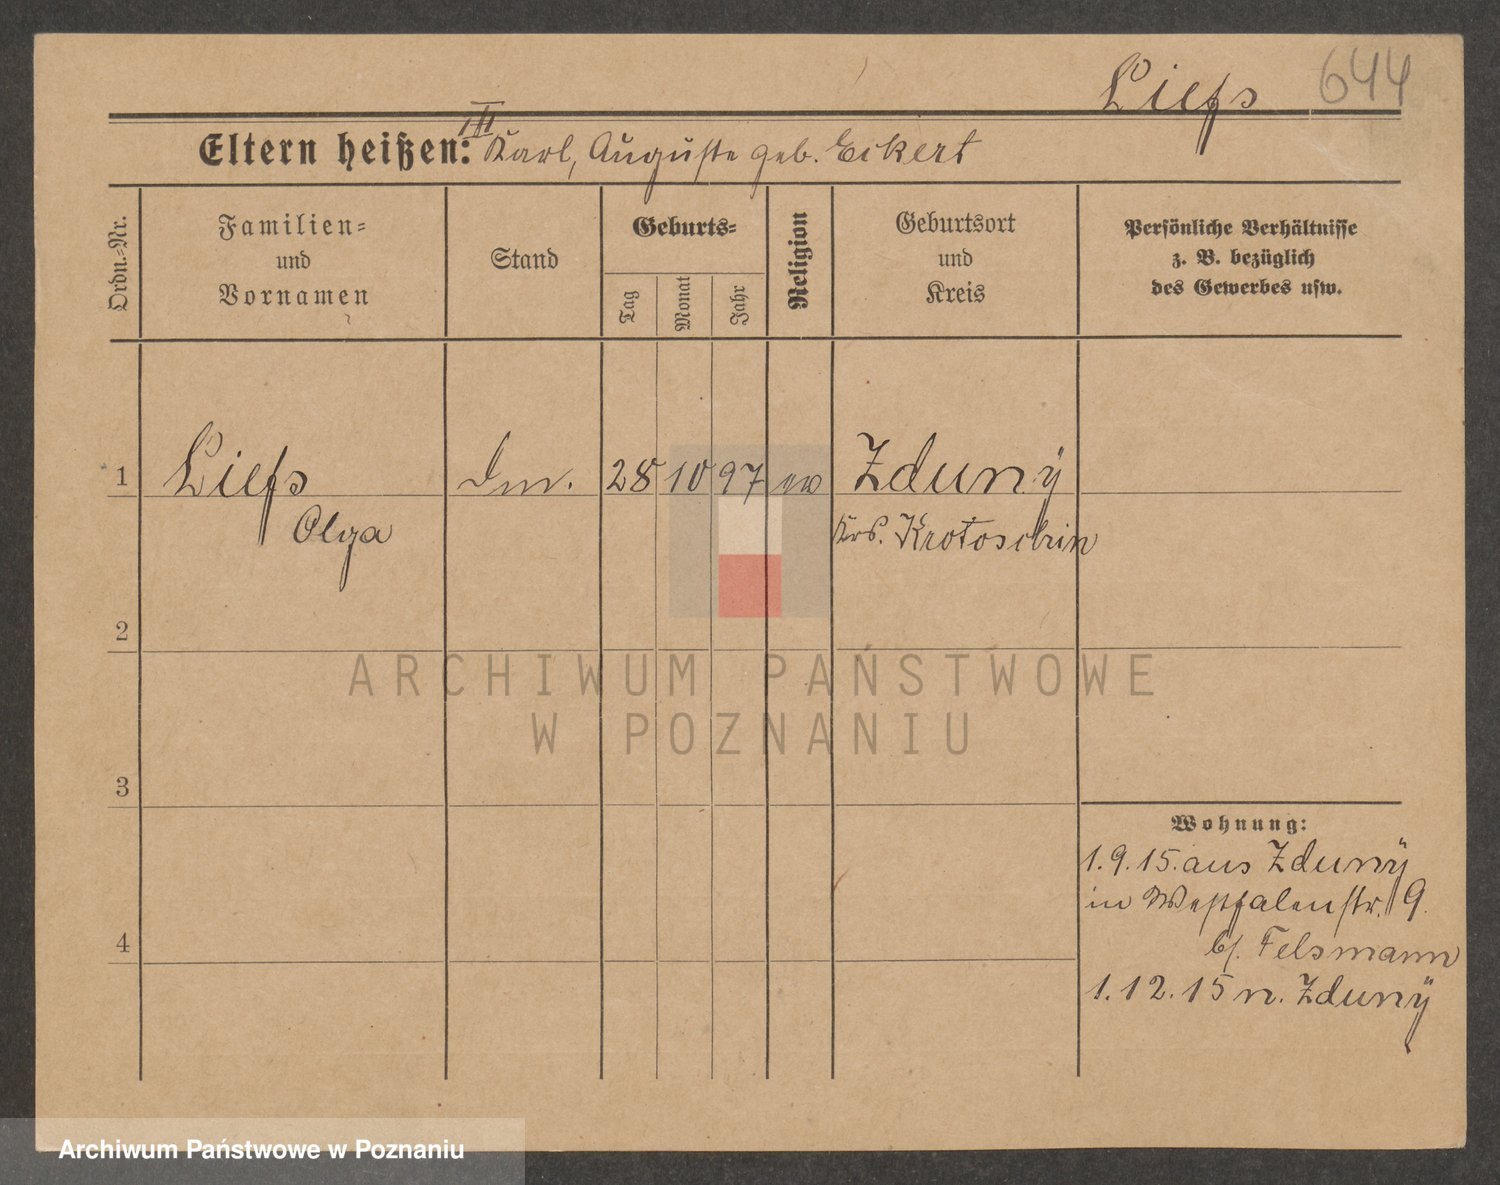 Liefs 644
III
Eltern heißen: Karl, Auguste geb. Eckert
Ordn.-Nr.
Familien-
und
Vornamen
Stand
Geburts-
Tag
Monat
Jahr
Religion
Geburtsort
und
Kreis
Persönliche Verhältnisse
z. B. bezüglich
des Gewerbes usw.
1 Liefs 28 10 97 ev Zduny
Olga Krs. Krotoschin
2
3
4
Wohnung:
1.9.15. aus Zduny
in Westfalenstr. 9.
b/. Felsmann
1.12.15 n. Zduny
ARCHIWUM PAŃSTWOWE
W POZNANIU
Archiwum Państwowe w Poznaniu